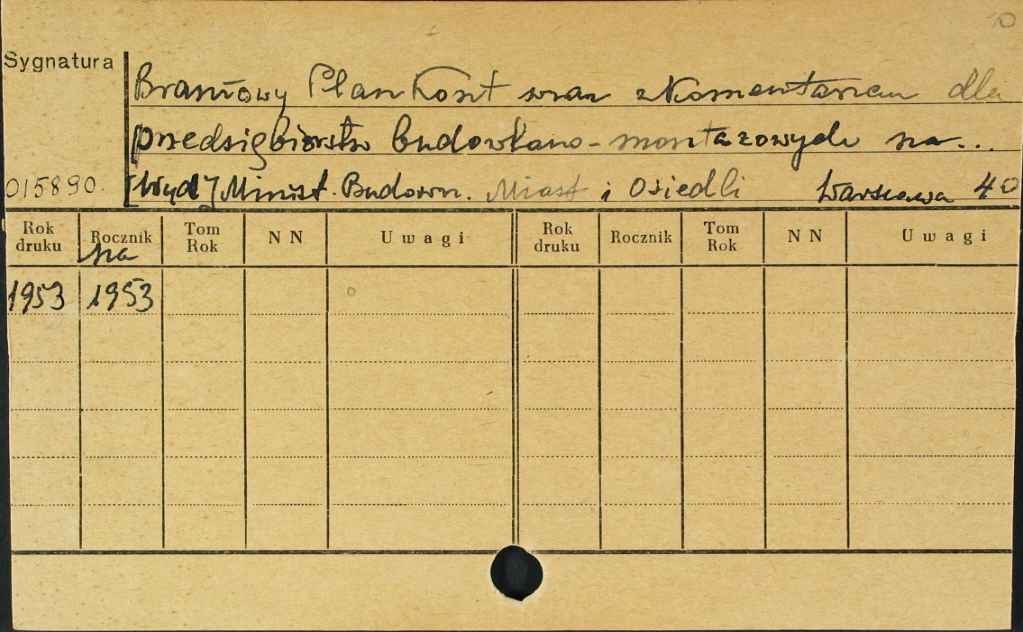 Sygnatura
Branżowy Plan Kont wraz z Komentarzem dla
przedsiębiorstw budowlano-montażowych na...
015890. [Wyd] Minist. Budown. Miast i Osiedli Warszawa 4o
Rok druku Rocznik na Tom Rok NN Uwagi Rok druku Rocznik Tom Rok NN Uwagi
1953 1953